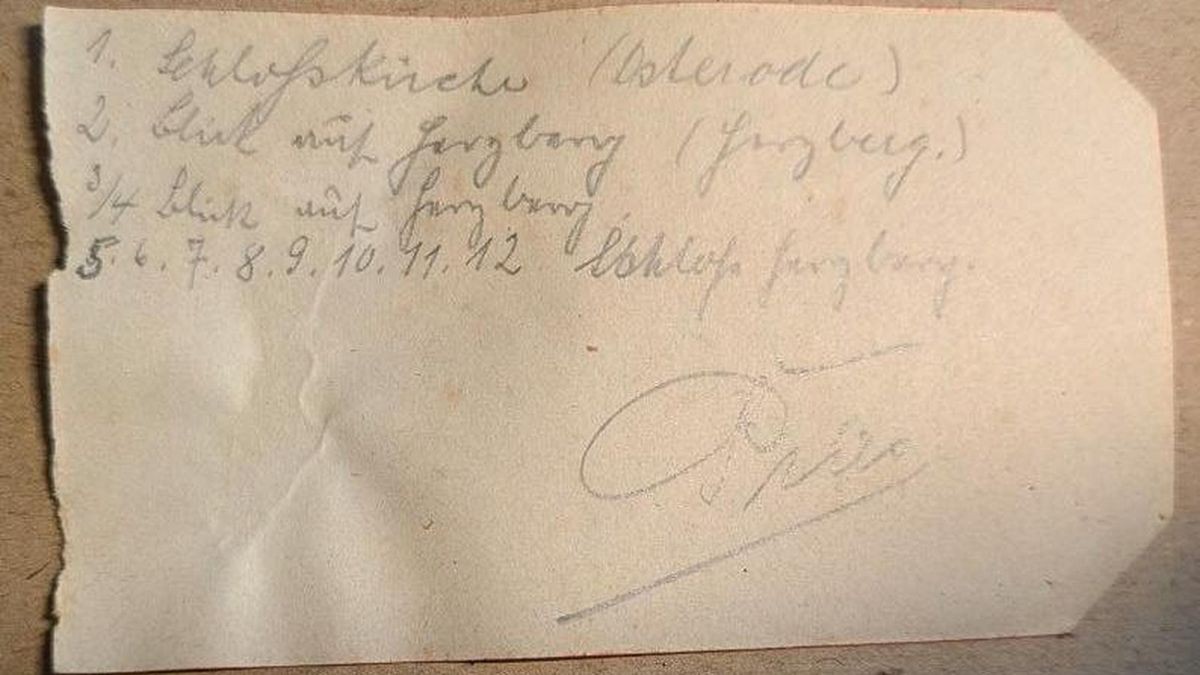 1. Schloßkirche (Osterode)
2. Blick auf Herzberg (Herzberg.)
3/4 Blick auf Herzberg.
5. 6. 7. 8. 9. 10. 11. 12 Schloß Herzberg.